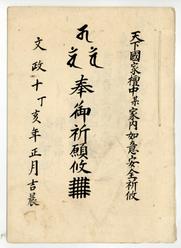 天下國家檀中某家内如意安全祈攸
奉御祈願攸
文政十丁亥年正月吉晨